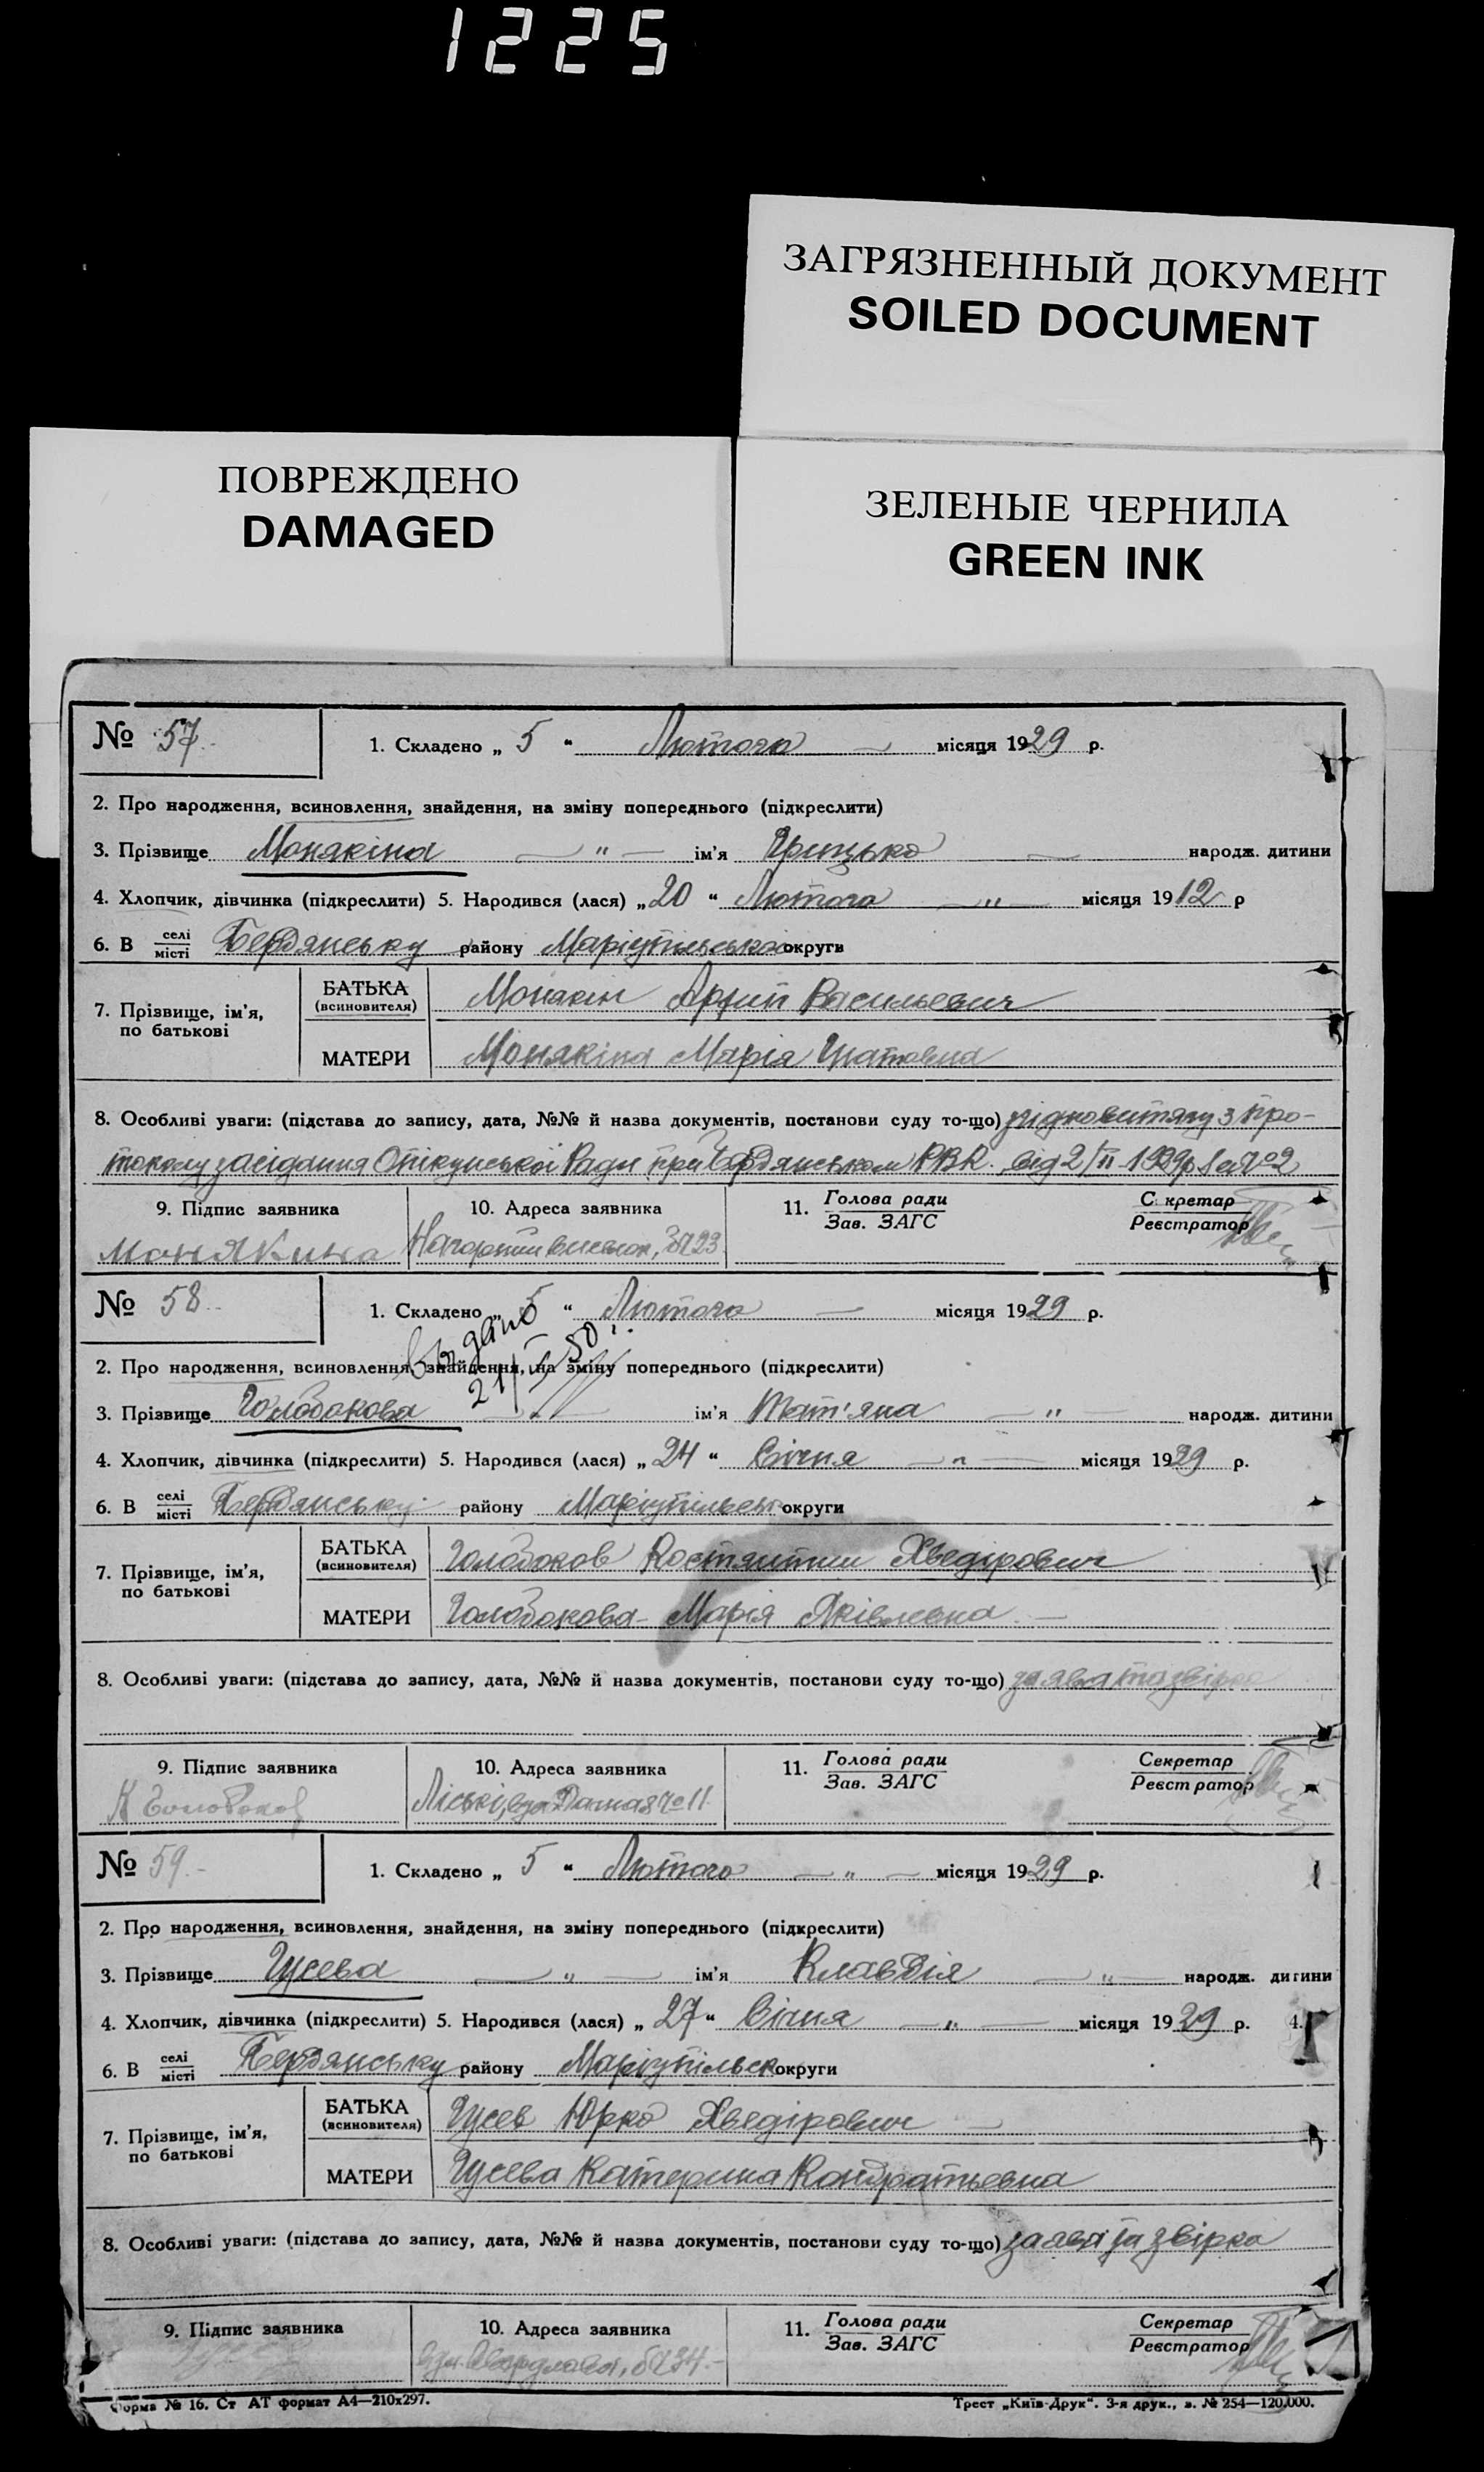 1225
ЗАГРЯЗНЕННЫЙ ДОКУМЕНТ
SOILED DOCUMENT
ПОВРЕЖДЕНО
DAMAGED
ЗЕЛЕНЫЕ ЧЕРНИЛА
GREEN INK
№ 57 1. Складено „ 5 “ Лютого місяця 1929 р.
2. Про народження, всиновлення, знайдення, на зміну попереднього (підкреслити)
3. Прізвище Монякіна — " — ім'я Грицько народж. дитини
4. Хлопчик, дівчинка (підкреслити) 5. Народився (лася) „ 20 “ Лютого — " — місяця 1912 р
6. В селі/місті Бердянську району Маріупільської округи
7. Прізвище, ім'я, по батькові
БАТЬКА (всиновителя) Монякін Васильевич
МАТЕРИ Монякіна Марія
8. Особливі уваги: (підстава до запису, дата, №№ й назва документів, постанови суду то-що) витягу з про-
токолу засідання Опікунської Ради при Бердянськом РВК від 2/II - 1929р №2
9. Підпис заявника 10. Адреса заявника 11. Голова ради/Зав. ЗАГС Секретар/Реєстратор
Монякина 23
№ 58 1. Складено „ 5 “ Лютого — місяця 1929 р.
выдано
21/ 50
2. Про народження, всиновлення, знайдення, на зміну попереднього (підкреслити)
3. Прізвище Голобокова — " — ім'я Тат'яна — " — народж. дитини
4. Хлопчик, дівчинка (підкреслити) 5. Народився (лася) „ 24 “ Січня — " — місяця 1929 р.
6. В селі/місті Бердянську району Маріупільськ округи
7. Прізвище, ім'я, по батькові
БАТЬКА (всиновителя) Голобоков Костянтин Хведірович
МАТЕРИ Голобокова - Марія Яківлевна —
8. Особливі уваги: (підстава до запису, дата, №№ й назва документів, постанови суду то-що) заява та звірка
9. Підпис заявника 10. Адреса заявника 11. Голова ради/Зав. ЗАГС Секретар/Реєстратор
К Голобоков Ліскі, №11
№ 59.- 1. Складено „ 5 “ Лютого — " — місяця 1929 р.
2. Про народження, всиновлення, знайдення, на зміну попереднього (підкреслити)
3. Прізвище Гусева — " — ім'я Клавдія — " — народж. дитини
4. Хлопчик, дівчинка (підкреслити) 5. Народився (лася) „ 27 “ Січня — " — місяця 1929 р. 4.
6. В селі/місті Бердянську району Маріупільськ округи
7. Прізвище, ім'я, по батькові
БАТЬКА (всиновителя) Гусев Юрко Хведірович —
МАТЕРИ Гусева Катерина Кондратьевна
8. Особливі уваги: (підстава до запису, дата, №№ й назва документів, постанови суду то-що) звірка
9. Підпис заявника 10. Адреса заявника 11. Голова ради/Зав. ЗАГС Секретар/Реєстратор
Форма № 16. Ст АТ формат А4—210х297. Трест „Київ-Друк“. 3-я друк., з. № 254—120,000.